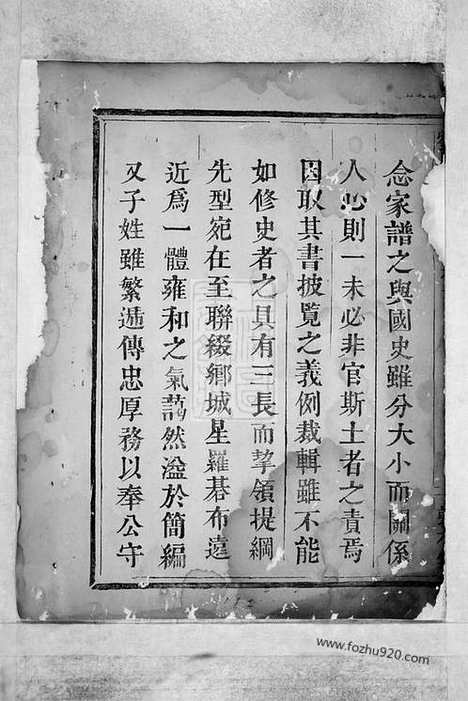 念家譜之與國史雖分大小而關係
人心則一未必非官斯土者之責焉
因取其書披覽之義例裁輯雖不能
如修史者之具有三長而挈領提綱
先型宛在至聯綴鄉城星羅碁布遠
近爲一體雍和之氣藹然溢於簡編
又子姓雖繁遞傳忠厚務以奉公守
www.fozhu920.com